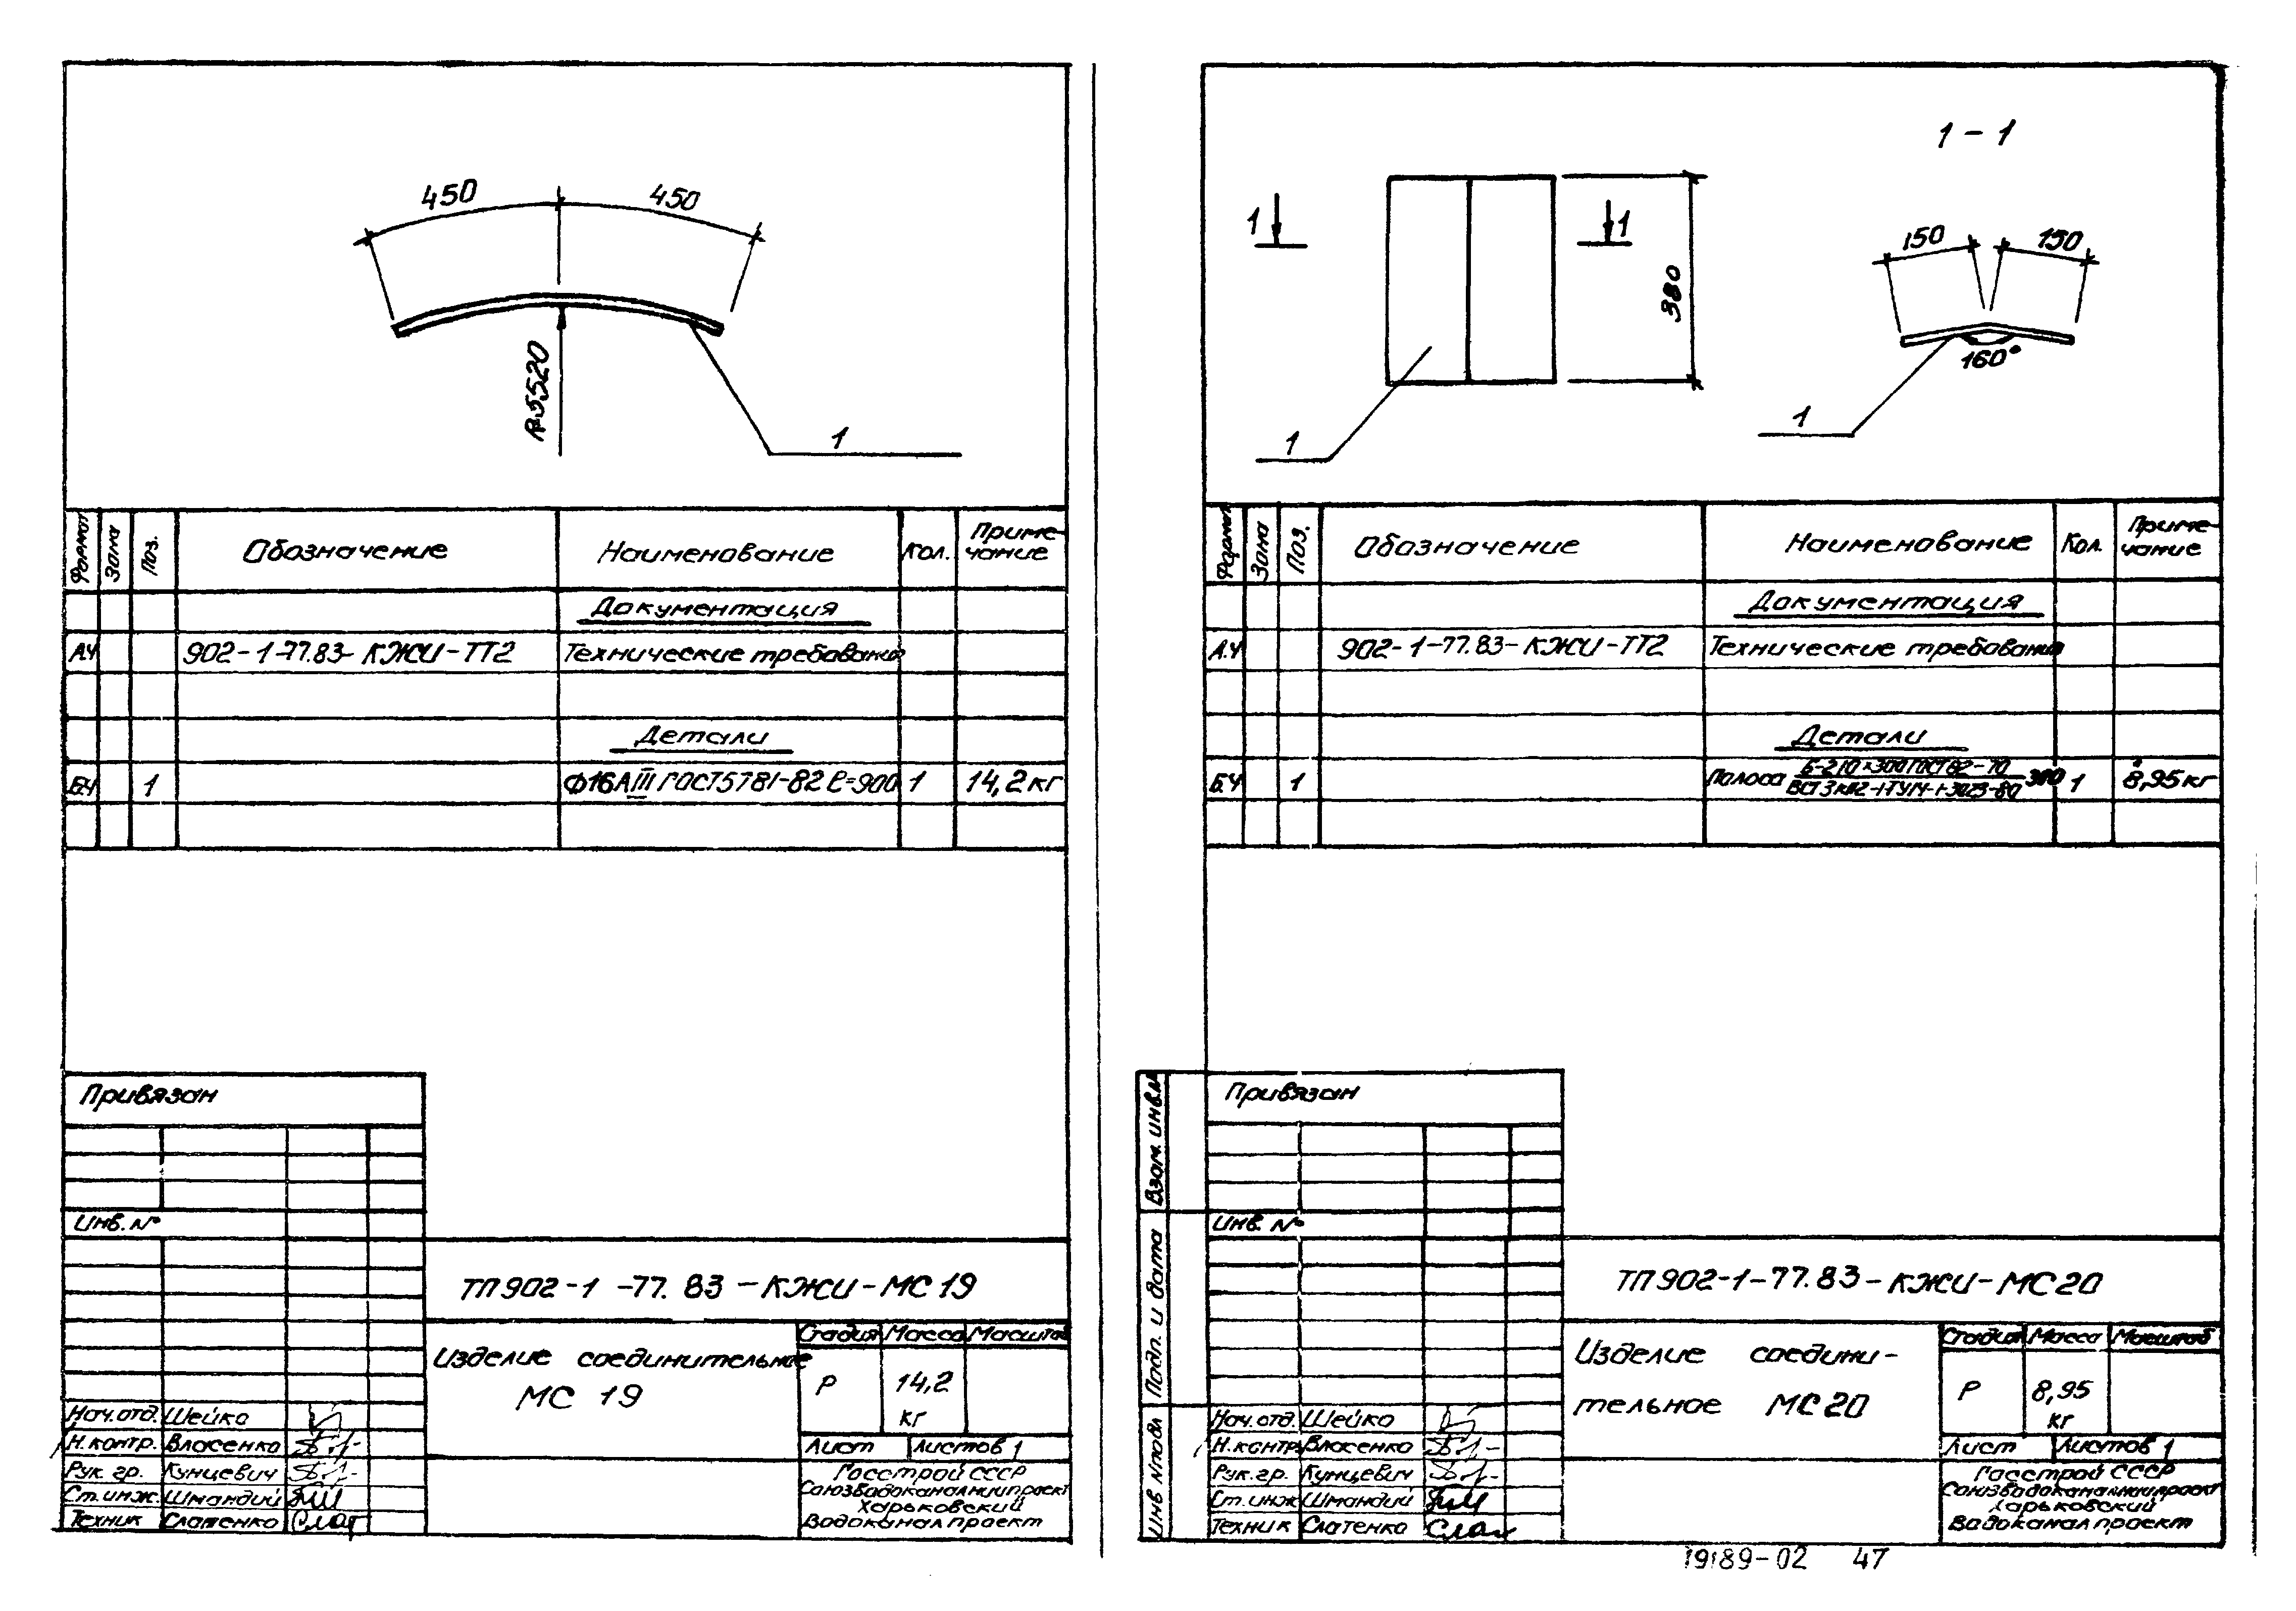 450
450
R5520
1
Формат
Зона
Поз.
Обозначение
Наименование
Кол.
Приме-
чание
Документация
А4
902-1-77.83-КЖИ-ТТ2
Технические требования
Детали
БЧ
1
Ф16АIII ГОСТ5781-82 ℓ=900
1
14,2кг
Привязан
Инв. №
ТП902-1-77.83-КЖИ-МС19
Изделие соединительное
МС 19
Стадия
Масса
Масштаб
Р
14,2
кг
Лист
Листов 1
Нач.отд. Шейко
Н.контр. Власенко
Рук. гр. Кунцевич
Ст.инж. Шмандий
Техник Слатенко
Госстрой СССР
Союзводоканалниипроект
Харьковский
Водоканалпроект
1-1
1
1
380
1
150
150
160°
1
Формат
Зона
Поз.
Обозначение
Наименование
Кол.
Приме-
чание
Документация
А.4
902-1-77.83-КЖИ-ТТ2
Технические требования
Детали
Б.Ч
1
Полоса
380
1
8,95кг
Взам. инв.№
Подп. и дата
Инв №подл
Привязан
Инв. №
ТП902-1-77.83-КЖИ-МС20
Изделие соедини-
тельное МС20
Стадия
Масса
Масштаб
Р
8,95
кг
Лист
Листов 1
Нач.отд. Шейко
Н.контр. Власенко
Рук.гр. Кунцевич
Ст.инж Шмандий
Техник Слатенко
Госстрой СССР
Союзводоканалниипроект
Харьковский
Водоканалпроект
19189-02 47